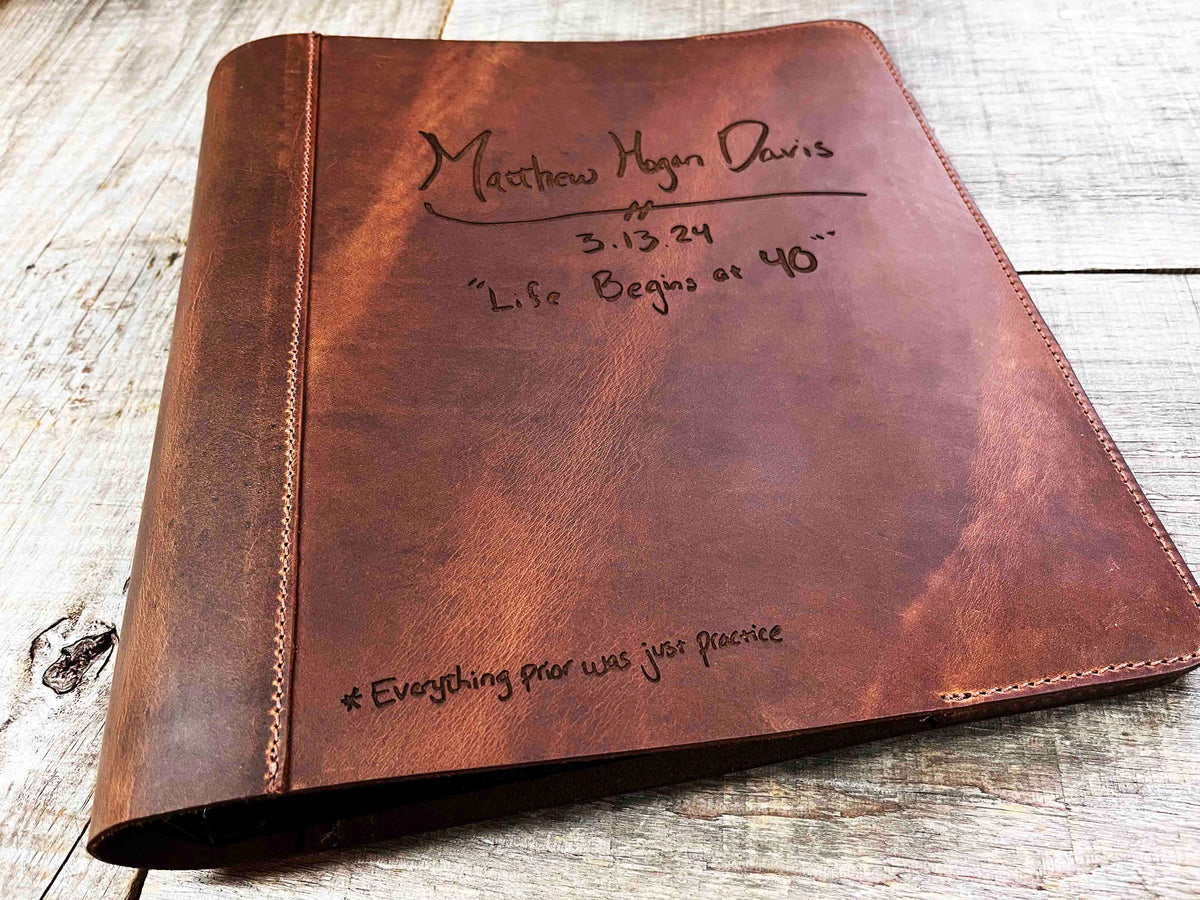 Matthew Hogan Davis
3.13.24
"Life Begins at 40*"
* Everything prior was just practice